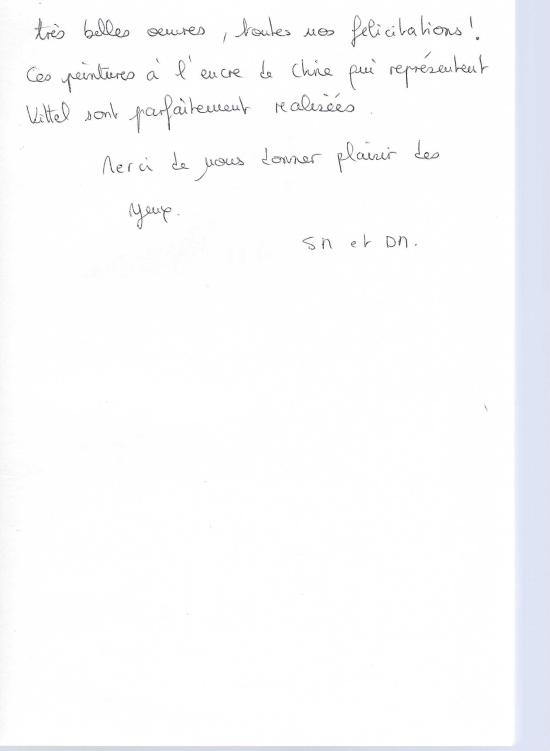 très belles oeuvres, toutes nos felicitations !
Ces peintures à l'encre de Chine qui représentent
Vittel sont parfaitement realisées.
Merci de nous donner plaisir des
yeux.
SN et DN.